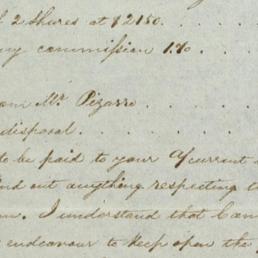 f 2 Shares at $2150.
ny commission 1%. . .
om Mr. Pizarro . . . .
disposal . . . . .
to be paid to your a/current
ind out anything respecting t
n. I understand that Can
endeavour to keep open the